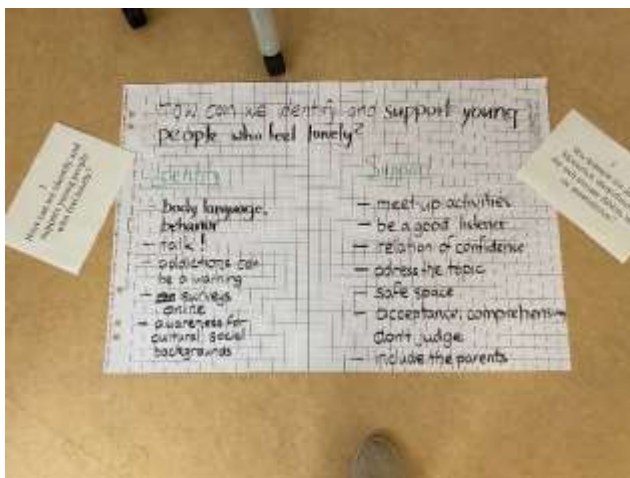 How can we identify and support young
people who feel lonely?
Identify
body language,
behavior
- talk!
- addictions can
be a warning
- surveys
online
- awareness for
cultural, social
backgrounds
Support
- meet-up activities
- be a good listener
- relation of confidence
- adress the topic
- safe space
- acceptance, comprehension
don't judge
- include the parents
How can we identify and
support young people
who feel lonely?